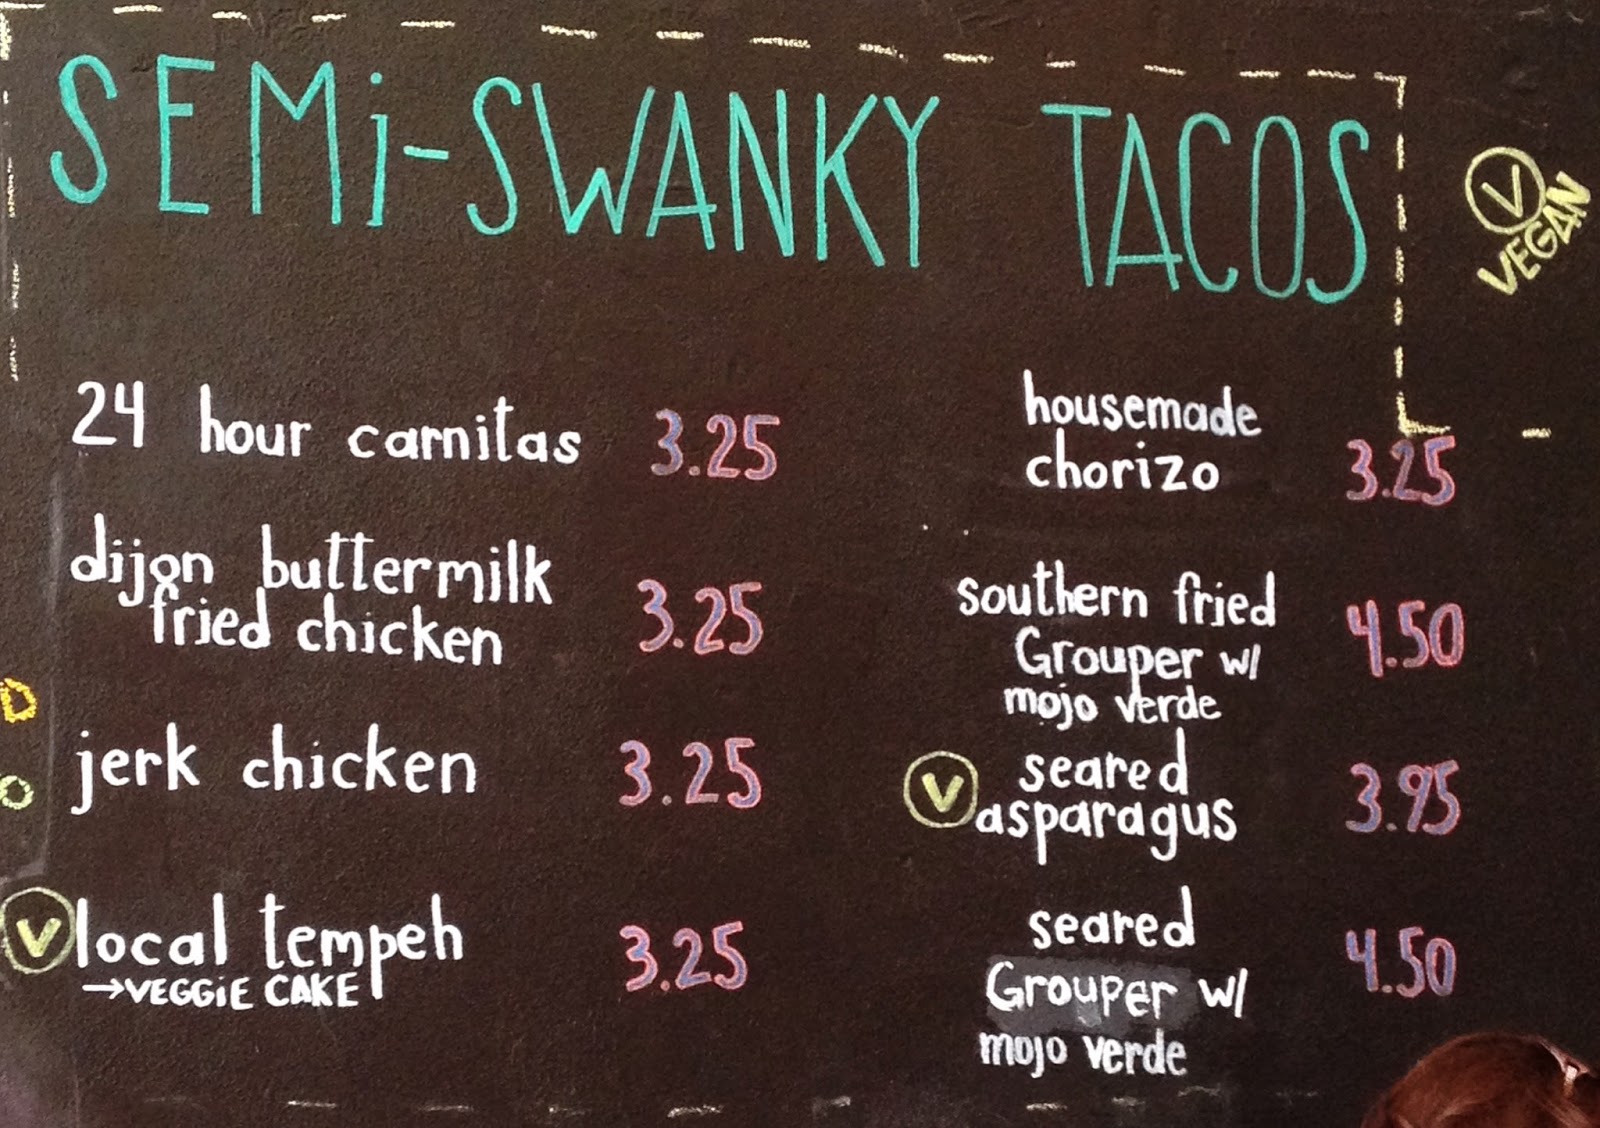 SEMi-SWANKY TACOS
V
VEGAN
24 hour carnitas 3.25
dijon buttermilk
fried chicken 3.25
jerk chicken 3.25
V local tempeh 3.25
→VEGGiE CAKE
housemade
chorizo 3.25
southern fried
Grouper w/ 4.50
mojo verde
V seared
asparagus 3.95
seared
Grouper w/ 4.50
mojo verde